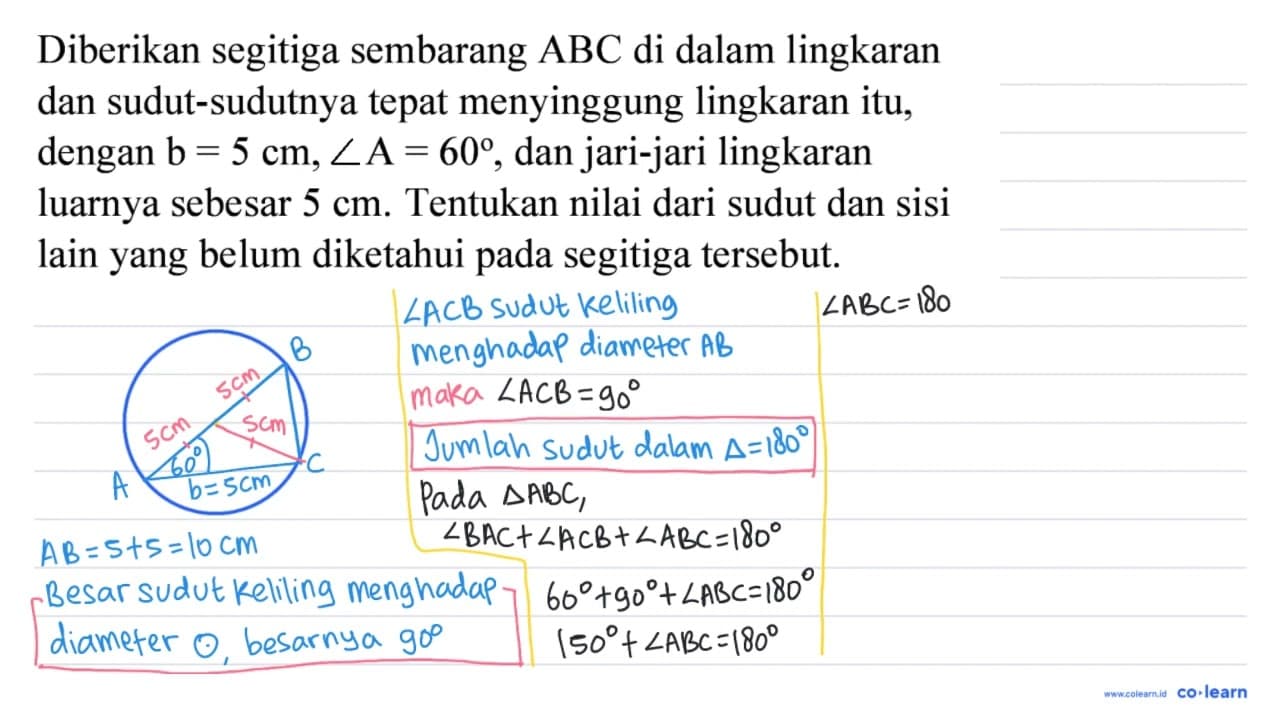 Diberikan segitiga sembarang ABC di dalam lingkaran
dan sudut-sudutnya tepat menyinggung lingkaran itu,
dengan b = 5 cm, ∠A = 60°, dan jari-jari lingkaran
luarnya sebesar 5 cm. Tentukan nilai dari sudut dan sisi
lain yang belum diketahui pada segitiga tersebut.
B
5cm
5cm
5cm
60°
A
b=5cm
C
AB=5+5=10 cm
Besar sudut keliling menghadap
diameter ⊙, besarnya 90°
∠ACB sudut keliling
menghadap diameter AB
maka ∠ACB=90°
Jumlah sudut dalam Δ=180°
Pada ΔABC,
∠BAC+∠ACB+∠ABC=180°
60°+90°+∠ABC=180°
150°+∠ABC=180°
∠ABC=180
www.colearn.id co·learn